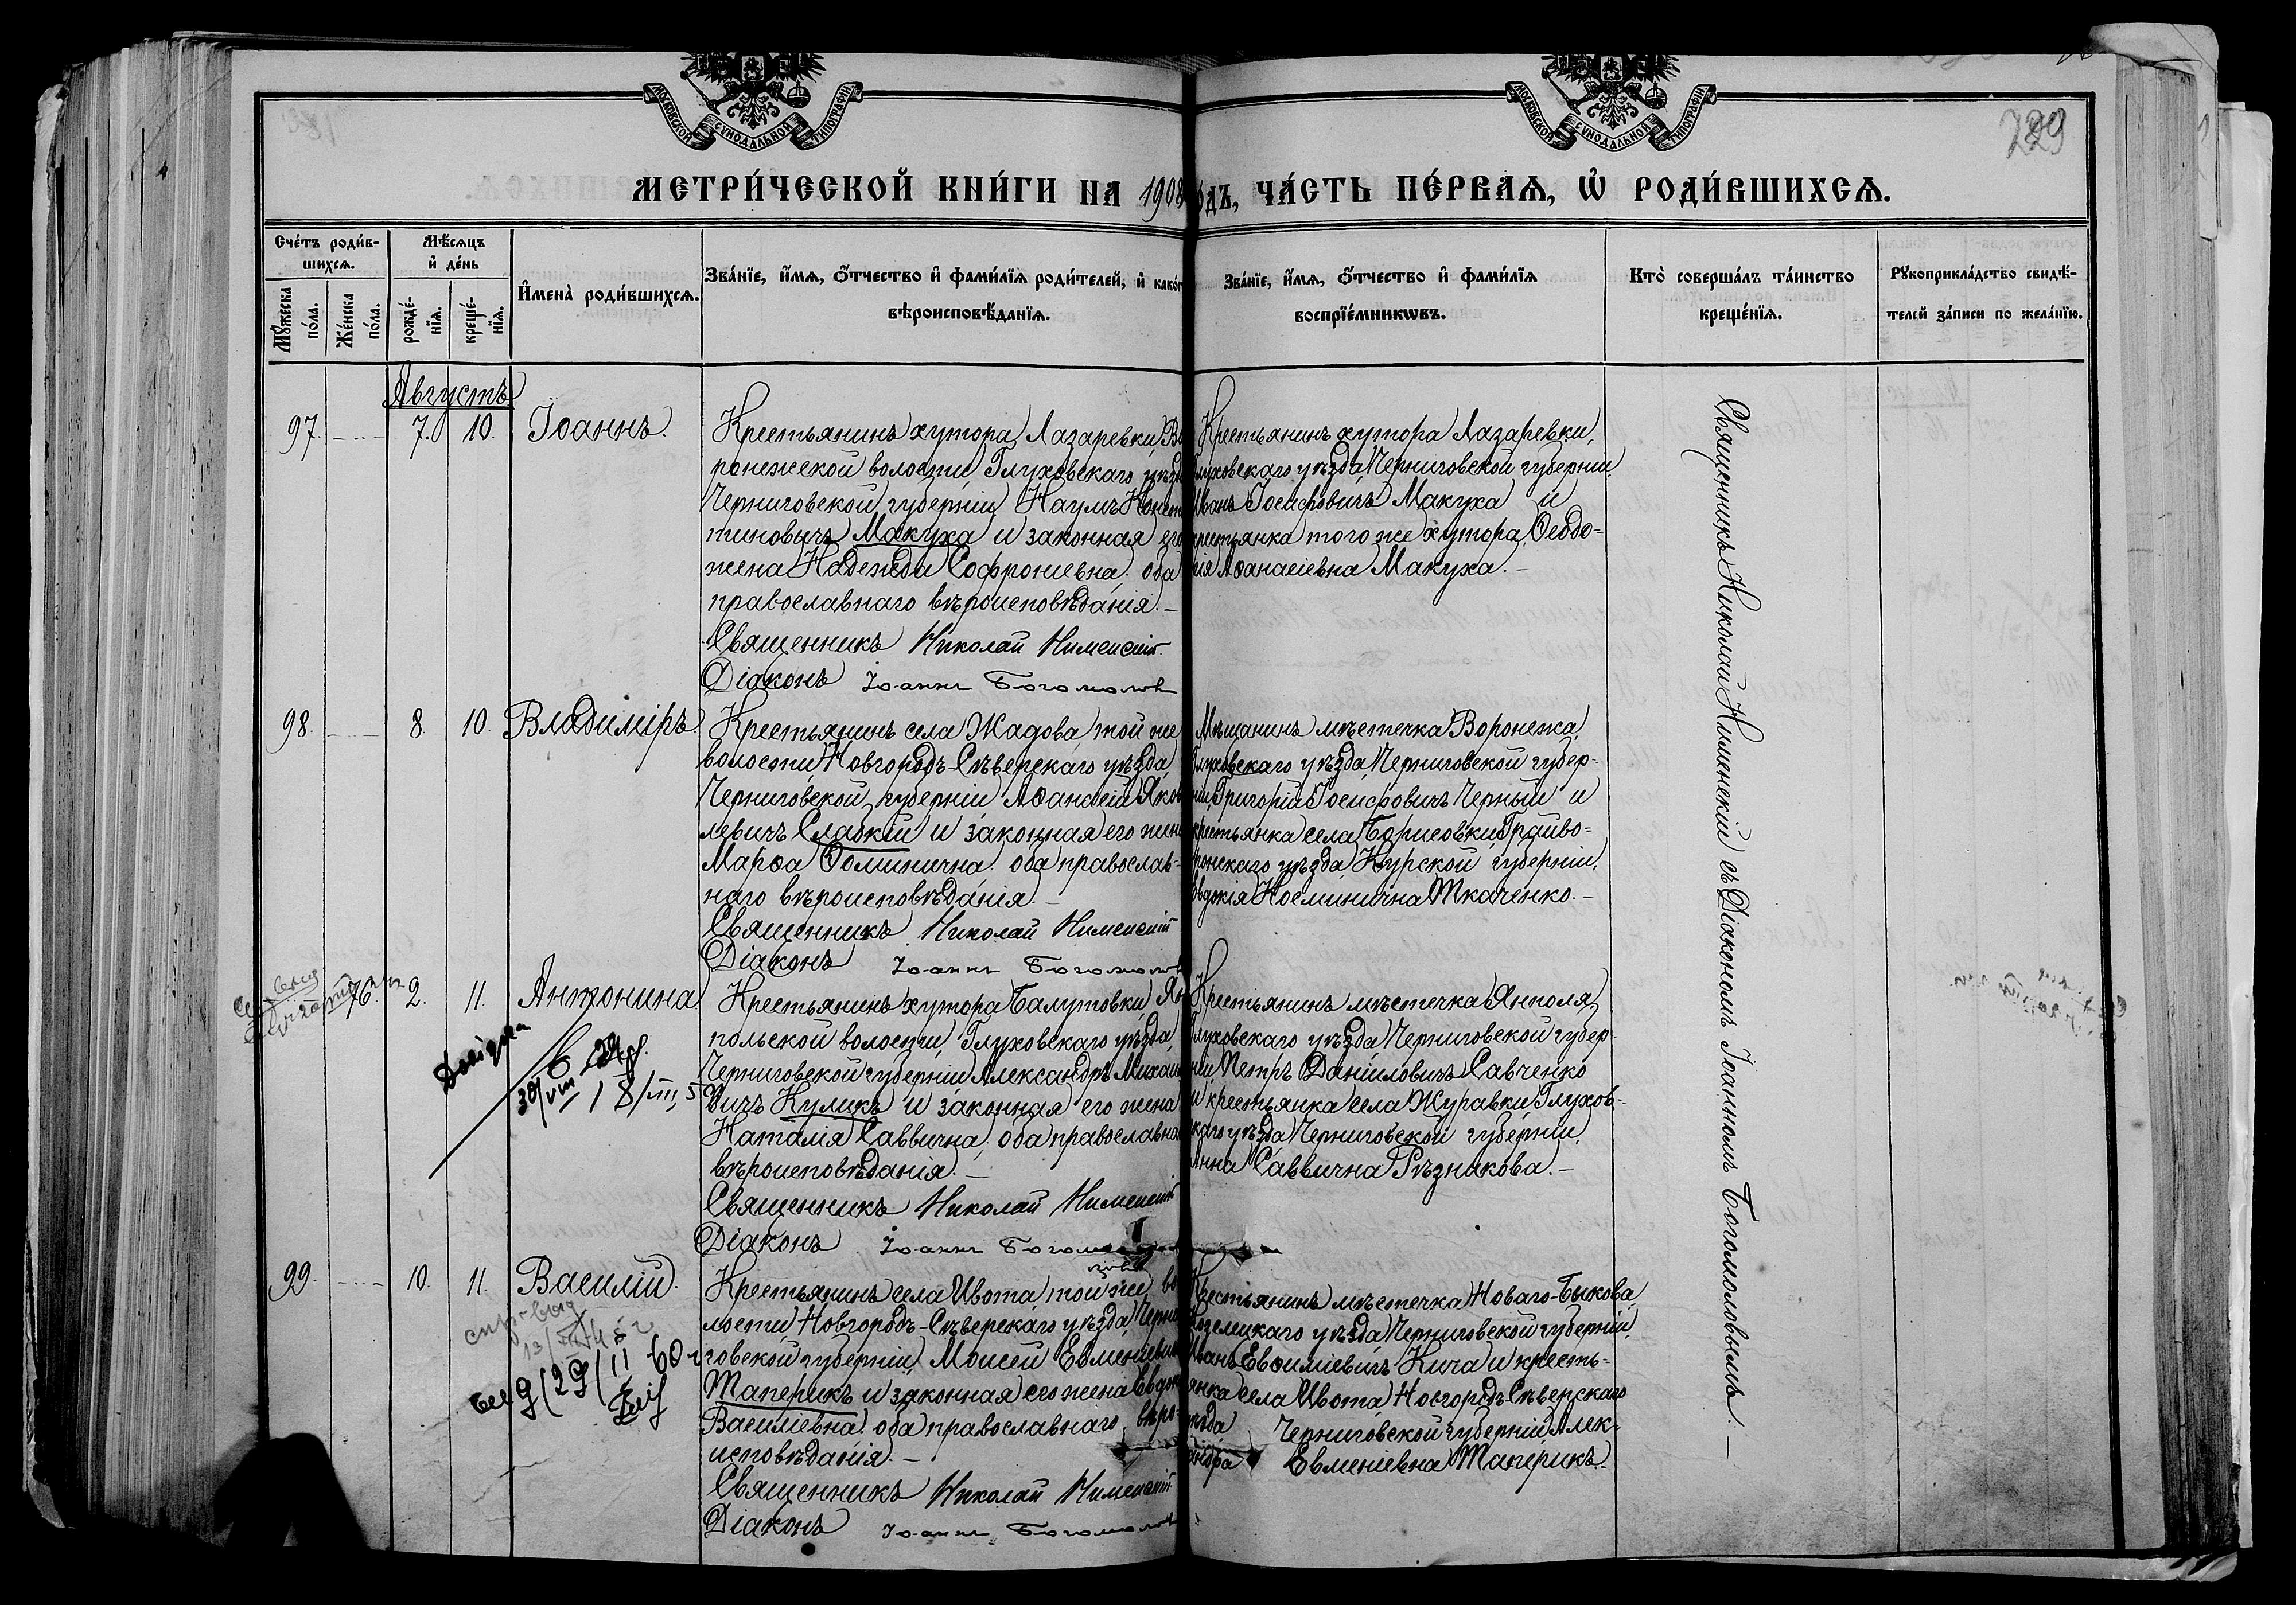 МОСКОВСКОЙ СѴНОДАЛЬНОЙ ТИПОГРАФІИ
МОСКОВСКОЙ СѴНОДАЛЬНОЙ ТИПОГРАФІИ
229
МЕТРИ́ЧЕСКОЙ КНИ́ГИ НА 1908 ГОДЪ, ЧА́СТЬ ПЕ́РВАѦ, Ѡ҆ РОДИ́ВШИХСѦ.
Сче́тъ роди́в-
шихсѧ.
Мꙋ́жеска по́ла.
Же́нска по́ла.
Мѣ́сѧцъ
и҆ де́нь
рожде́-нїѧ.
креще́-нїѧ.
И҆мена̀ роди́вшихсѧ.
Зва́нїе, и҆́мѧ, ѻ҆́тчество и҆ фами́лїѧ роди́телей, и҆ како́г
вѣроисповѣ́данїѧ.
Зва́нїе, и҆́мѧ, ѻ҆́тчество и҆ фами́лїѧ
воспрїе́мникѡвъ.
Кто̀ соверша́лъ та́инство
креще́нїѧ.
Рꙋкоприкла́дство свидѣ́-
телей за́писи по жела́нїю.
Августъ
97. 7. 10. Іоаннъ.
Крестьянинъ хутора Лазаревки, Во
ронежской волости, Глуховскаго уѣзда
Черниговской губерніи Наумъ Конста
тиновичъ Макуха и законная его
жена Надежда Софроніевна, оба
православнаго вѣроисповѣданія.
Священникъ Николай
Діаконъ Іоаннъ Богомоловъ
Крестьянинъ хутора Лазаревки,
Глуховскаго уѣзда Черниговской губерніи
Иванъ Іосифовичъ Макуха и
крестьянка того же хутора Ѳеодо-
сія Аѳанасіевна Макуха.
98. 8. 10. Владиміръ.
Крестьянинъ села Жадова, той же
волости, Новгородъ-Сѣверскаго уѣзда,
Черниговской губерніи Аѳанасій Яков
левичъ Слабкій и законная его жена
Марѳа Ѳоминична, оба православ-
наго вѣроисповѣданія.
Священникъ Николай
Діаконъ Іоаннъ Богомоловъ
Мѣщанинъ мѣстечка Воронежа,
Глуховскаго уѣзда, Черниговской губер-
ніи Григорій Іосифовичъ Черный и
крестьянка села Борисовки, Грайво-
ронскаго уѣзда, Курской губерніи,
Евдокія Косминична Ткаченко.
76. 2. 11. Антонина.
Крестьянинъ хутора Балутовки, Ям
польской волости, Глуховскаго уѣзда,
Черниговской губерніи Александръ Михаи
вичъ Куликъ и законная его жена
Наталія Саввична, оба православна
вѣроисповѣданія.
Священникъ Николай
Діаконъ Іоаннъ Богомо
ловъ
Крестьянинъ мѣстечка Ямполя,
Глуховскаго уѣзда Черниговской губер-
ніи, Петръ Даніиловичъ Савченко
и крестьянка села Журавки, Глухов-
скаго уѣзда Черниговской губерніи,
Анна Саввична Рѣзникова.
99. 10. 11. Василій.
Крестьянинъ села Ивота, той же во
лости Новгородъ-Сѣверскаго уѣзда, Черни
говской губерніи Моисей Евменіевичъ
Таперикъ и законная его жена Евдок
Василіевна, оба православнаго вѣро-
исповѣданія.
Священникъ Николай
Діаконъ Іоаннъ Богомоловъ
Крестьянинъ мѣстечка Новаго-Быкова,
Козелецкаго уѣзда Черниговской губерніи,
Иванъ Евѳиміевичъ Кича и кресть-
янка села Ивота, Новгородъ-Сѣверскаго
уѣзда Черниговской губерніи, Алек-
сандра Евменіевна Таперикъ.
Священникъ Николай съ Діакономъ Іоанномъ Богомоловымъ.